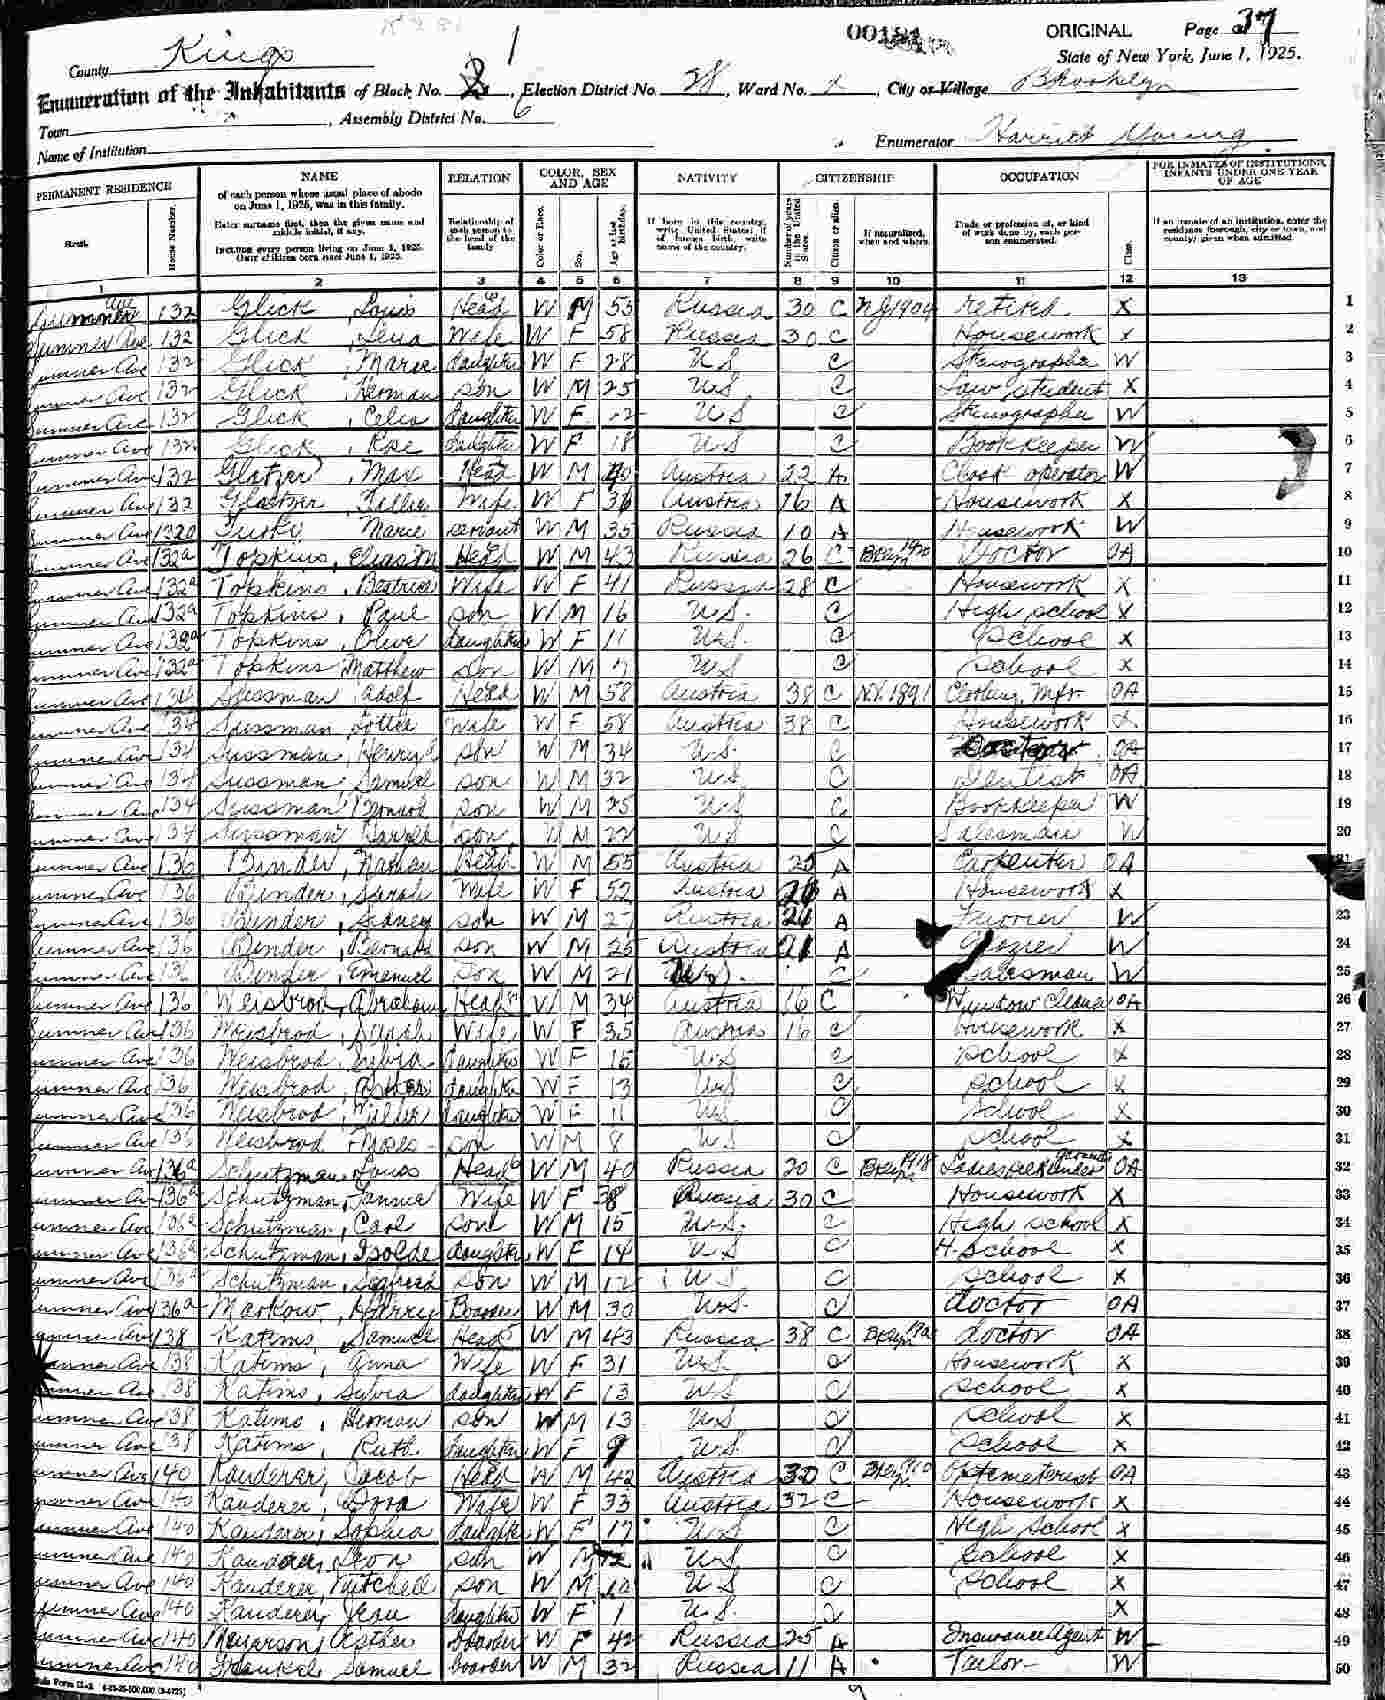 00181 ORIGINAL Page 37
County Kings State of New York, June 1, 1925.
Enumeration of the Inhabitants of Block No. 2 1, Election District No. 28, Ward No. x, City or Village Brooklyn
Town , Assembly District No. 6
Name of Institution Enumerator Harriet Young
PERMANENT RESIDENCE NAME RELATION COLOR, SEX AND AGE NATIVITY CITIZENSHIP OCCUPATION FOR INMATES OF INSTITUTIONS, INFANTS UNDER ONE YEAR OF AGE
Street. House Number. of each person whose usual place of abode on June 1, 1925, was in this family. Enter surname first, then the given name and middle initial, if any. INCLUDE every person living on June 1, 1925. OMIT children born since June 1, 1925. Relationship of each person to the head of the family Color or Race. Sex. Age at last birthday. If born in this country, write United States; if of foreign birth, write name of the country. Number of years in the United States Citizen or alien. If naturalized, when and where. Trade or profession of, or kind of work done by, each person enumerated. Class. If an inmate of an institution, enter the residence (borough, city or town, and county) given when admitted
1 2 3 4 5 6 7 8 9 10 11 12 13
Sumner Ave 132 Glick, Louis Head W M 55 Russia 30 C NJ 1904 retired X 1
Sumner Ave 132 Glick, Lena Wife W F 58 Russia 30 C Housework x 2
Sumner Ave 132 Glick, daughter W F 28 US C Stenographer W 3
Sumner Ave 132 Glick, Herman son W M 25 US C Law student X 4
Sumner Ave 132 Glick, Celia daughter W F 22 US C Stenographer W 5
Sumner Ave 132 Glick, Rose daughter W F 18 US C Bookkeeper W 6
Sumner Ave 132 Glatzer, Max Head W M 40 Austria 22 A Cloak operator W 7
Sumner Ave 132 Glatzer, Tillie Wife W F 36 Austria 16 A Housework X 8
Sumner Ave 132a Marie servant W M 35 Russia 10 A Housework W 9
Sumner Ave 132a Topkins, Head W M 43 Russia 26 C Bklyn 1920 Doctor OA 10
Sumner Ave 132a Topkins, Beatrice Wife W F 41 Russia 28 C Housework X 11
Sumner Ave 132a Topkins, Paul son W M 16 U.S. C High school X 12
Sumner Ave 132a Topkins, Olive daughter W F 11 U.S. C School X 13
Sumner Ave 132a Topkins Matthew son W M 7 US C School X 14
Sumner Ave 134 Sussman Adolf Head W M 58 Austria 38 C NY. 1891 Clothing Mfr. OA 15
Sumner Ave 134 Sussman, Lottie Wife W F 58 Austria 38 C Housework X 16
Sumner Ave 134 Sussman, Henry son W M 34 US. C OA 17
Sumner Ave 134 Sussman, Samuel son W M 32 US C Dentist OA 18
Sumner Ave 134 Sussman son W M 25 US C Bookkeeper W 19
Sumner Ave 134 Sussman son W M 22 US C Salesman W 20
Sumner Ave 136 Binder, Nathan Head W M 55 Austria 25 A Carpenter OA 21
Sumner Ave 136 Binder, Sarah Wife W F 52 Austria A Housework X
Sumner Ave 136 Binder, Sidney son W M 27 Austria 21 A Furrier W 23
Sumner Ave 136 Binder, Bernard son W M 25 Austria 21 A W 24
Sumner Ave 136 Binder, Emanuel son W M 21 U.S. C Salesman W 25
Sumner Ave 136 Weisbrod, Abraham Head W M 34 Austria 16 C Window Cleaner OA 26
Sumner Ave 136 Weisbrod, Sarah Wife W F 35 Austria 16 C Housework X 27
Sumner Ave 136 Weisbrod, Sylvia daughter W F 15 US C School X 28
Sumner Ave 136 Weisbrod, Esther daughter W F 13 US C School X 29
Sumner Ave 136 Weisbrod, daughter W F 11 US C School X 30
Sumner Ave 136 Weisbrod, Moses son W M 8 US C School X 31
Sumner Ave 136a Schutzman, Louis Head W M 40 Russia 20 C Bklyn 1918 OA 32
Sumner Ave 136a Schutzman, Wife W F 38 Russia 30 C Housework X 33
Sumner Ave 136a Schutzman, Carl son W M 15 U.S. C High school X 34
Sumner Ave 136a Schutzman, Isolde daughter W F 14 US C H. School X 35
Sumner Ave 136a Schutzman, Siegfried son W M 12 US C School X 36
Sumner Ave 136a Markow, Harry Boarder W M 30 U.S. C doctor OA 37
Sumner Ave 138 Katims, Samuel Head W M 43 Russia 38 C Bklyn doctor OA 38
Sumner Ave 138 Katims, Anna Wife W F 31 U.S. C Housework X 39
Sumner Ave 138 Katims, Sylvia daughter W F 13 US C School X 40
Sumner Ave 138 Katims, Herman son W M 13 US C School X 41
Sumner Ave 138 Katims, Ruth daughter W F 9 U.S. C School X 42
Sumner Ave 140 Kanderer, Jacob Head W M 42 Austria 30 C Bklyn 1910 Optometrist OA 43
Sumner Ave 140 Kanderer, Dora Wife W F 33 Austria 32 C Housework X 44
Sumner Ave 140 Kanderer, Sophia daughter W F 17 US C High School X 45
Sumner Ave 140 Kanderer, Leon son W M 12 US C School X 46
Sumner Ave 140 Kanderer, Mitchell son W M 10 US C School X 47
Sumner Ave 140 Kanderer, Jean daughter W F 1 U.S. C X 48
Sumner Ave 140 Boarder W F 42 Russia 25 A Insurance Agent W 49
Sumner Ave 140 Samuel boarder W M 32 Russia 11 A Tailor W 50